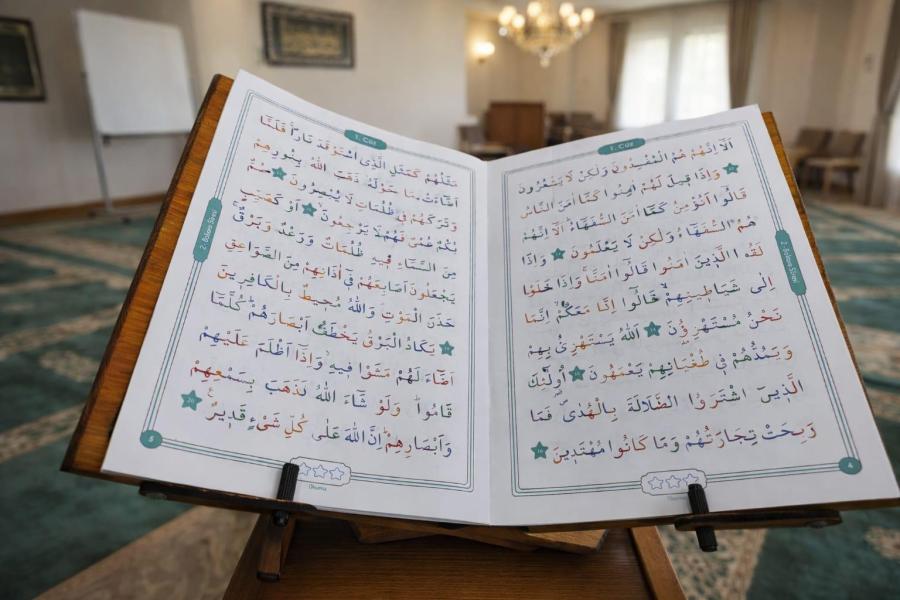 1. Cüz
اَلَٓا اِنَّهُمْ هُمُ الْمُفْسِدُونَ وَلٰكِنْ لَا يَشْعُرُونَ
وَاِذَا قِيلَ لَهُمْ اٰمِنُوا كَمَٓا اٰمَنَ النَّاسُ
قَالُٓوا اَنُؤْمِنُ كَمَٓا اٰمَنَ السُّفَهَٓاءُ اَلَٓا اِنَّهُمْ
هُمُ السُّفَهَٓاءُ وَلٰكِنْ لَا يَعْلَمُونَ وَاِذَا
لَقُوا الَّذِينَ اٰمَنُوا قَالُٓوا اٰمَنَّا وَاِذَا خَلَوْا
اِلٰى شَيَاطِينِهِمْ قَالُٓوا اِنَّا مَعَكُمْ اِنَّمَا
نَحْنُ مُسْتَهْزِؤُ۫نَ اَللّٰهُ يَسْتَهْزِئُ بِهِمْ
وَيَمُدُّهُمْ فِي طُغْيَانِهِمْ يَعْمَهُونَ اُو۬لٰٓئِكَ
الَّذِينَ اشْتَرَوُا الضَّلَالَةَ بِالْهُدٰى فَمَا
رَبِحَتْ تِجَارَتُهُمْ وَمَا كَانُوا مُهْتَدِينَ
4
1. Cüz
2- Bakara Sûresi
مَثَلُهُمْ كَمَثَلِ الَّذِي اسْتَوْقَدَ نَارًا فَلَمَّٓا
اَضَٓاءَتْ مَا حَوْلَهُ ذَهَبَ اللّٰهُ بِنُورِهِمْ
وَتَرَكَهُمْ فِي ظُلُمَاتٍ لَا يُبْصِرُونَ صُمٌّ
بُكْمٌ عُمْيٌ فَهُمْ لَا يَرْجِعُونَ اَوْ كَصَيِّبٍ
مِنَ السَّمَٓاءِ فِيهِ ظُلُمَاتٌ وَرَعْدٌ وَبَرْقٌ
يَجْعَلُونَ اَصَابِعَهُمْ فِٓي اٰذَانِهِمْ مِنَ الصَّوَاعِقِ
حَذَرَ الْمَوْتِ وَاللّٰهُ مُحِيطٌ بِالْكَافِرِينَ
يَكَادُ الْبَرْقُ يَخْطَفُ اَبْصَارَهُمْ كُلَّمَٓا
اَضَٓاءَ لَهُمْ مَشَوْا فِيهِ وَاِذَٓا اَظْلَمَ عَلَيْهِمْ
قَامُوا وَلَوْ شَٓاءَ اللّٰهُ لَذَهَبَ بِسَمْعِهِمْ
وَاَبْصَارِهِمْ اِنَّ اللّٰهَ عَلٰى كُلِّ شَيْءٍ قَدِيرٌ
5
Okuma